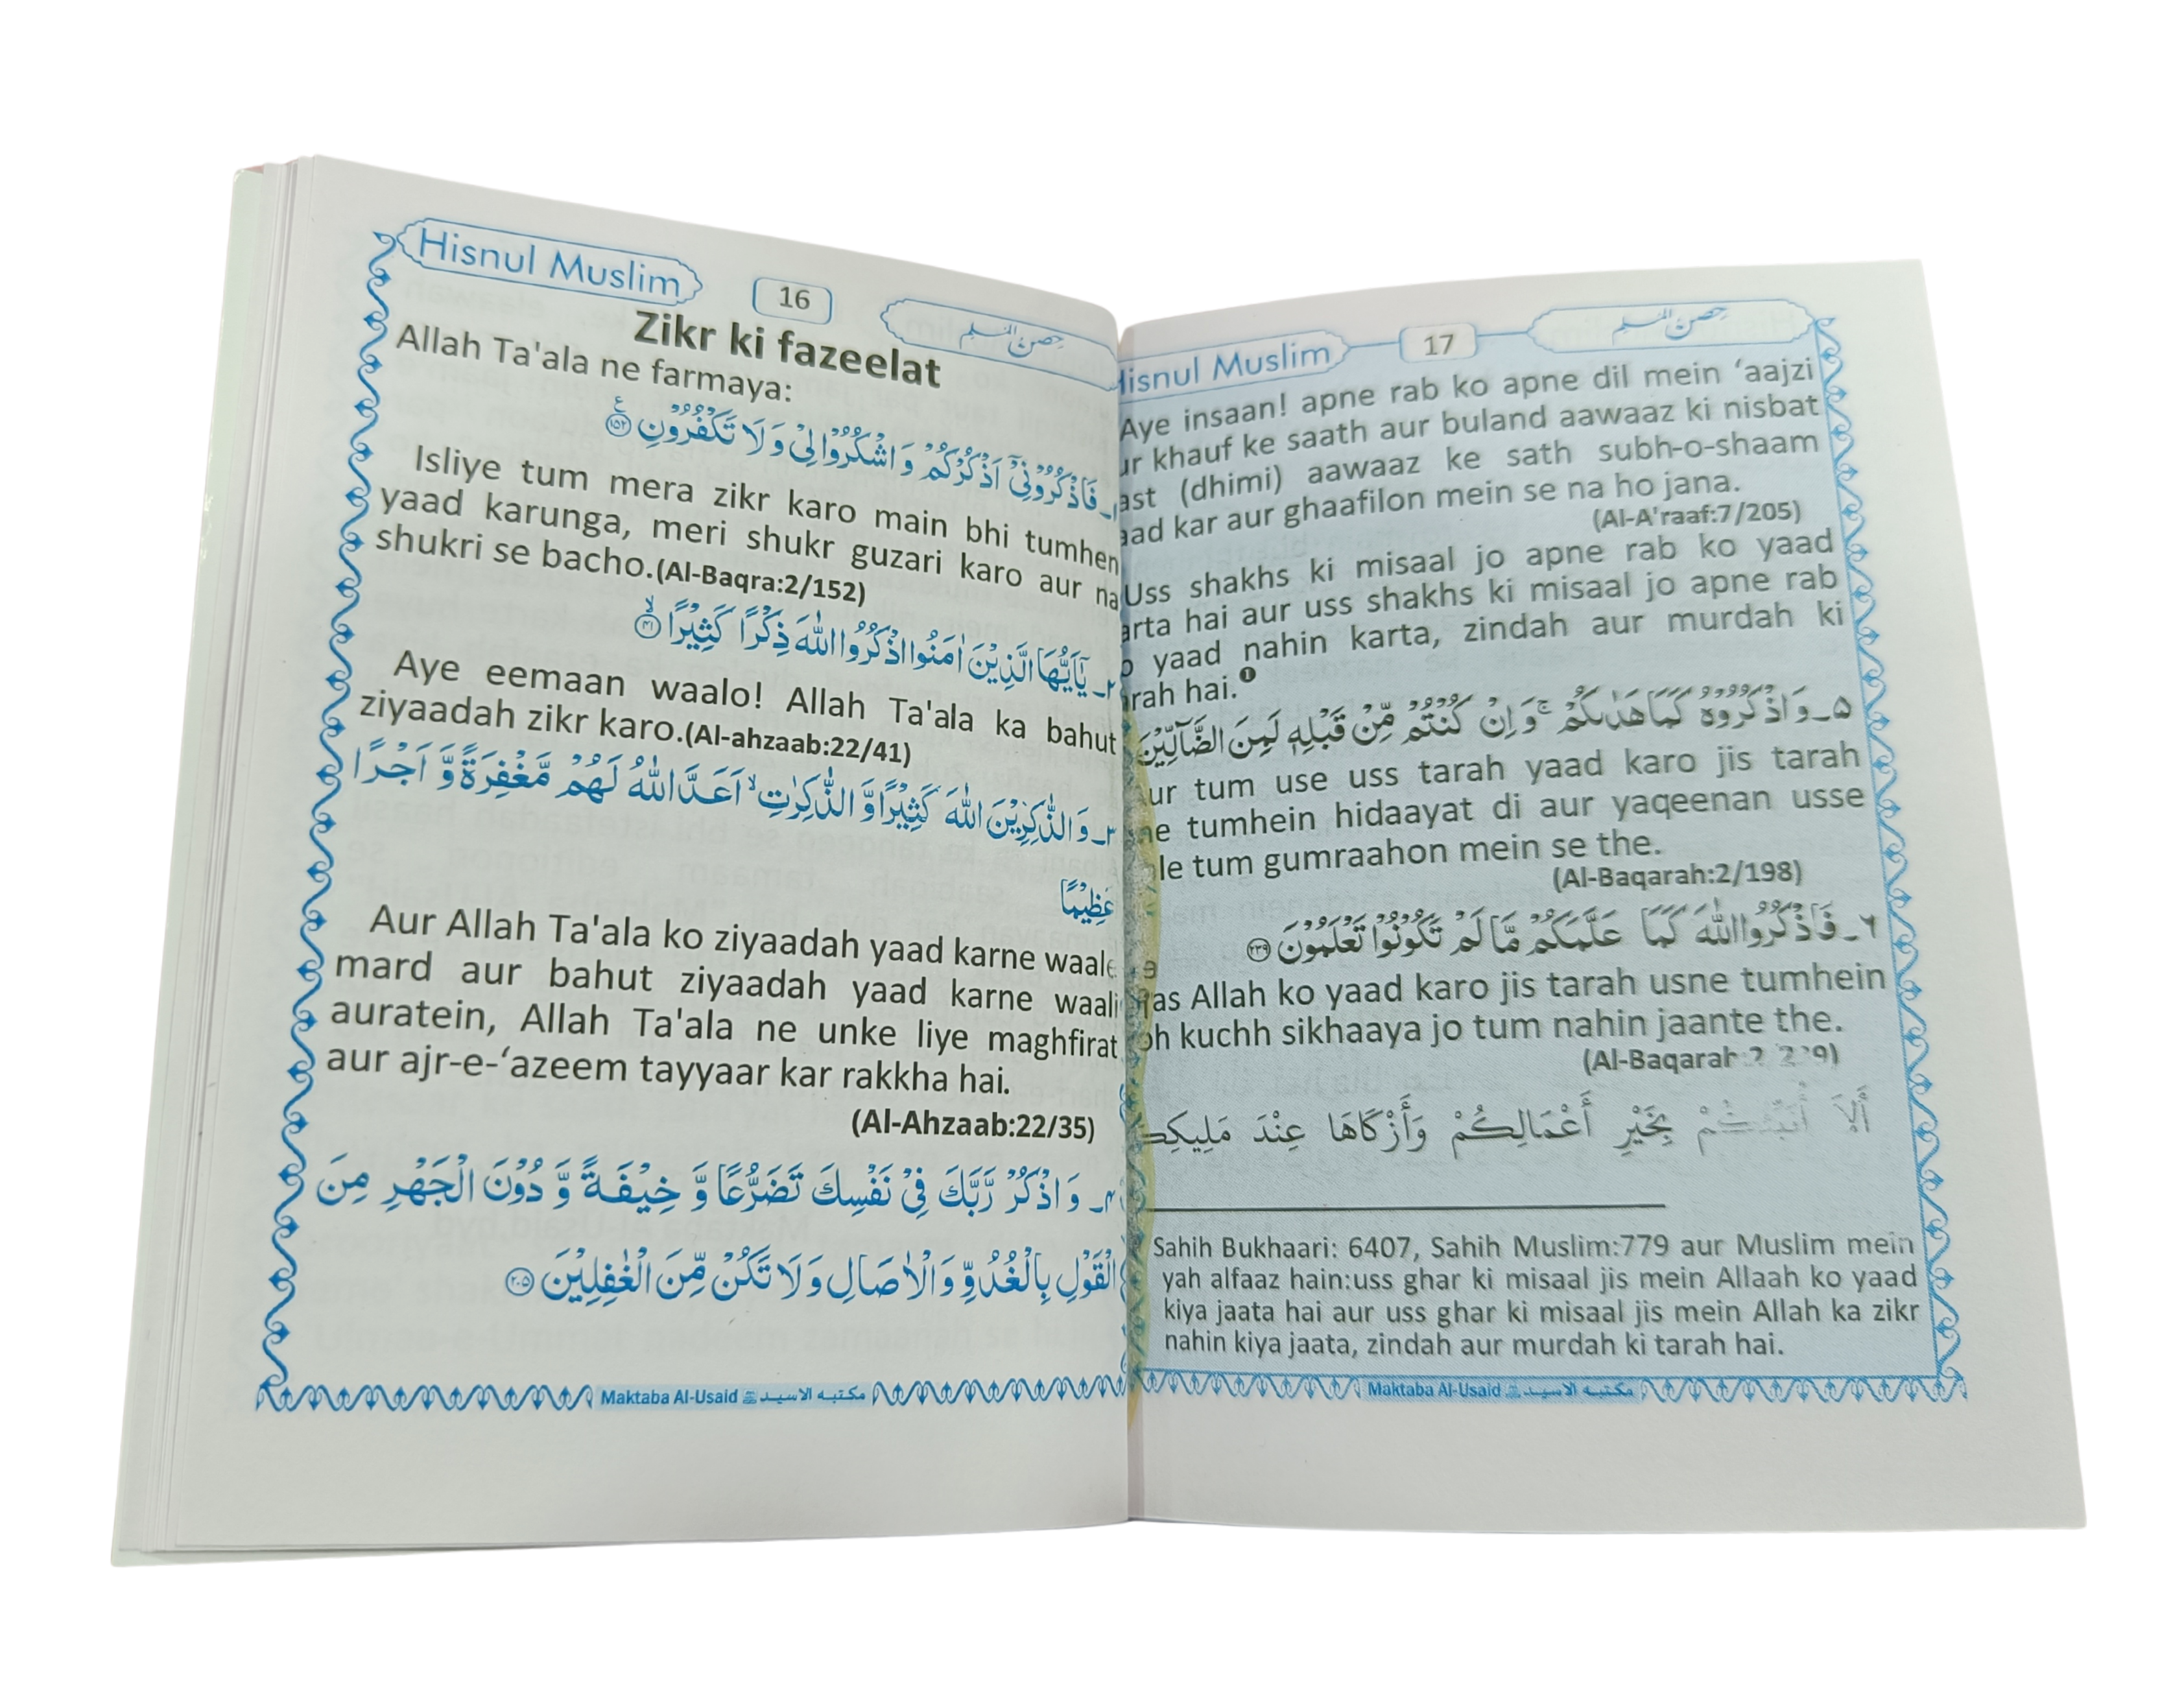 Hisnul Muslim
16
حصن المسلم
Zikr ki fazeelat
Allah Ta'ala ne farmaya:
١ـ فَاذْكُرُوْنِيْٓ اَذْكُرْكُمْ وَ اشْكُرُوْا لِيْ وَ لَا تَكْفُرُوْنِ ۝١٥٢
Isliye tum mera zikr karo main bhi tumhen
yaad karunga, meri shukr guzari karo aur na
shukri se bacho.(Al-Baqra:2/152)
٢ـ يٰٓاَيُّهَا الَّذِيْنَ اٰمَنُوا اذْكُرُوا اللّٰهَ ذِكْرًا كَثِيْرًا ۝٤١
Aye eemaan waalo! Allah Ta'ala ka bahut
ziyaadah zikr karo.(Al-ahzaab:22/41)
٣ـ وَ الذّٰكِرِيْنَ اللّٰهَ كَثِيْرًا وَّ الذّٰكِرٰتِ ۙ اَعَدَّ اللّٰهُ لَهُمْ مَّغْفِرَةً وَّ اَجْرًا
عَظِيْمًا
Aur Allah Ta'ala ko ziyaadah yaad karne waale
mard aur bahut ziyaadah yaad karne waali
auratein, Allah Ta'ala ne unke liye maghfirat
aur ajr-e-‘azeem tayyaar kar rakkha hai.
(Al-Ahzaab:22/35)
٤ـ وَ اذْكُرْ رَّبَّكَ فِيْ نَفْسِكَ تَضَرُّعًا وَّ خِيْفَةً وَّ دُوْنَ الْجَهْرِ مِنَ
الْقَوْلِ بِالْغُدُوِّ وَ الْاٰصَالِ وَ لَا تَكُنْ مِّنَ الْغٰفِلِيْنَ ۝٢٠٥
Maktaba Al-Usaid مكتبه الاسيد
Hisnul Muslim
17
حصن المسلم
Aye insaan! apne rab ko apne dil mein ‘aajzi
ur khauf ke saath aur buland aawaaz ki nisbat
ast (dhimi) aawaaz ke sath subh-o-shaam
aad kar aur ghaafilon mein se na ho jana.
(Al-A'raaf:7/205)
Uss shakhs ki misaal jo apne rab ko yaad
arta hai aur uss shakhs ki misaal jo apne rab
o yaad nahin karta, zindah aur murdah ki
arah hai.❶
٥ـ وَ اذْكُرُوْهُ كَمَا هَدٰىكُمْ ۚ وَ اِنْ كُنْتُمْ مِّنْ قَبْلِهٖ لَمِنَ الضَّآلِّيْنَ
ur tum use uss tarah yaad karo jis tarah
ne tumhein hidaayat di aur yaqeenan usse
le tum gumraahon mein se the.
(Al-Baqarah:2/198)
٦ـ فَاذْكُرُوا اللّٰهَ كَمَا عَلَّمَكُمْ مَّا لَمْ تَكُوْنُوْا تَعْلَمُوْنَ ۝٢٣٩
as Allah ko yaad karo jis tarah usne tumhein
oh kuchh sikhaaya jo tum nahin jaante the.
(Al-Baqarah:2/239)
أَلَا أُنَبِّئُكُمْ بِخَيْرِ أَعْمَالِكُمْ وَأَزْكَاهَا عِنْدَ مَلِيكِكُ
Sahih Bukhaari: 6407, Sahih Muslim:779 aur Muslim mein
yah alfaaz hain:uss ghar ki misaal jis mein Allaah ko yaad
kiya jaata hai aur uss ghar ki misaal jis mein Allah ka zikr
nahin kiya jaata, zindah aur murdah ki tarah hai.
Maktaba Al-Usaid مكتبه الاسيد